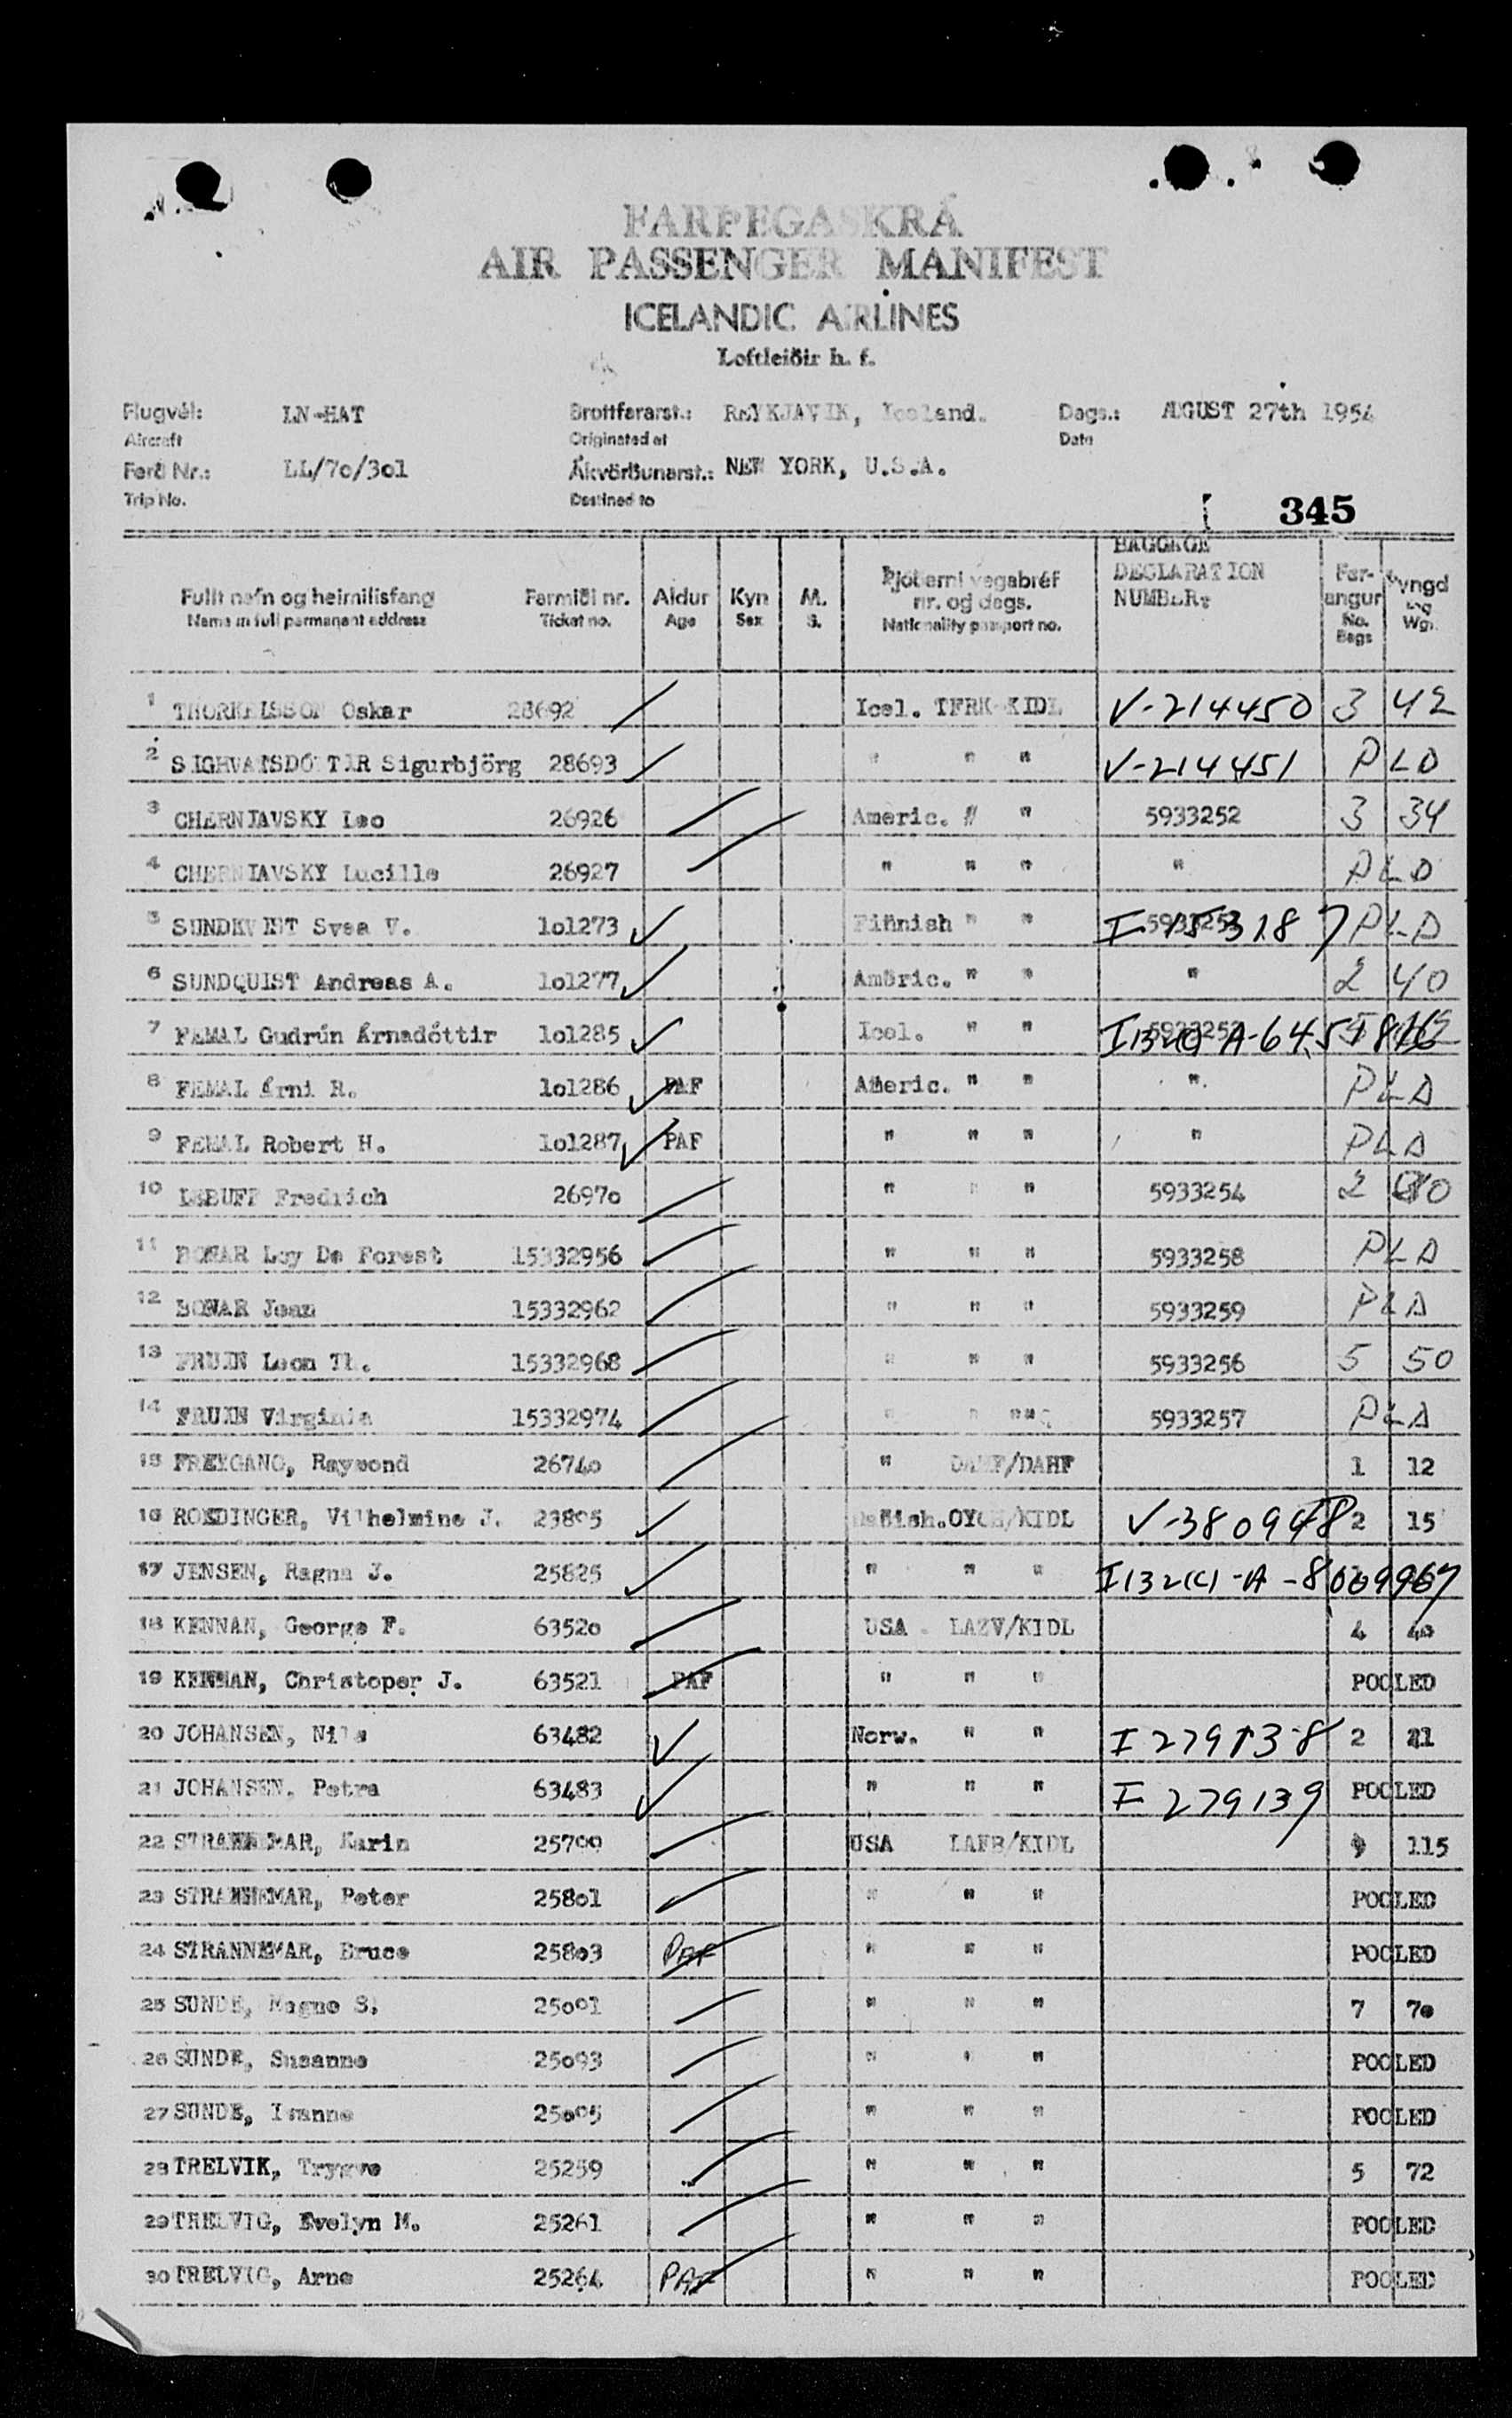 FARÞEGASKRÁ
AIR PASSENGER MANIFEST
ICELANDIC AIRLINES
Loftleiðir h. f.
Flugvél: LN-HAT Brottfararst.: REYKJAVIK, Iceland. Dags.: AUGUST 27th 1954
Aircraft Originated at Date
Ferð Nr.: LL/7o/3o1 Ákvörðunarst.: NEW YORK, U.S.A.
Trip No. Destined to
345
BAGGAGE DECLARATION NUMBER:
Fullt nafn og heimilisfang Farmiði nr. Aldur Kyn M. Þjóðerni vegabréf nr. og dags. Far-angur Þyngd
Name in full permanent address Ticket no. Age Sex S. Nationality passport no. No. Bags kg Wgt.
1 THORKELSSON Oskar 28692 Icel. TFRK-KIDL V-214450 3 42
2 SIGHVATSDÓTTIR Sigurbjörg 28693 " " " V-214451 PLD
3 CHERNIAVSKY Leo 26926 Americ. " " 5933252 3 34
4 CHERNIAVSKY Lucille 26927 " " " " PLD
5 SUNDKVIST Svea V. 1o1273 Finnish " " PLD
6 SUNDQUIST Andreas A. 1o1277 Americ. " " " 2 40
7 FEMAL Gudrún Árnadóttir 1o1285 Icel. " "
8 FEMAL Árni R. 1o1286 PAF Americ. " " " PLD
9 FEMAL Robert H. 1o1287 PAF " " " " PLD
10 LEBUFF Fredrich 2697o " " " 5933254 2
11 BONAR Loy De Forest 15332956 " " " 5933258 PLD
12 BONAR Jean 15332962 " " " 5933259 PLD
13 FRUIN Leon Th. 15332968 " " " 5933256 5 50
14 FRUIN Virginia 15332974 " " " 5933257 PLD
15 FREYGANG, Raymond 2674o " DAHF/DAHF 1 12
16 ROEDINGER, Vilhelmine J. Danish. /KIDL 2 15
17 JENSEN, Ragna J. 25825 " " "
18 KENNAN, George F. 6352o USA LAZV/KIDL 4 4o
19 KENNAN, Christoper J. 63521 PAF " " " POOLED
20 JOHANSEN, Nils 63482 Norw. " " I 279138 2 21
21 JOHANSEN, Petra 63483 " " " I 279139 POOLED
22 STRANNEMAR, Karin USA LAFB/KIDL 115
23 STRANNEMAR, Peter 258o1 " " " POOLED
24 STRANNEMAR, Bruce 258o3 PAF " " " POOLED
25 SUNDE, Magne S. " " " 7 7o
26 SUNDE, Susanne 25o93 " " " POOLED
27 SUNDE, " " " POOLED
28 TRELVIK, Trygve 25259 " " " 5 72
29 TRELVIG, Evelyn M. 25261 " " " POOLED
30 TRELVIG, Arne 25264 PAF " " " POOLED